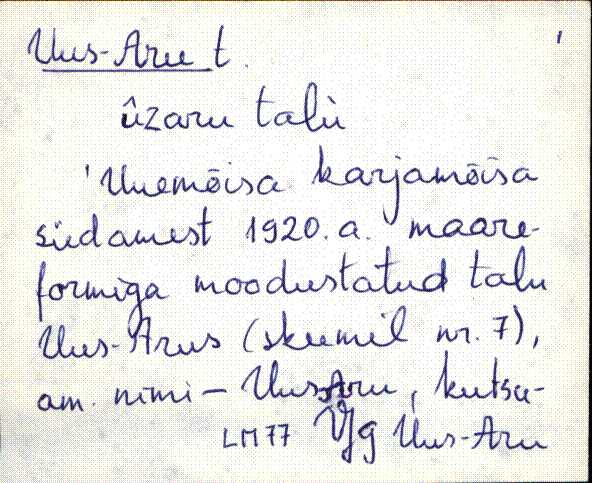 Uus-Aru t.
ûzaru talù
'Uuemõisa karjamõisa
südamest 1920.a. maare-
formiga moodustatud talu
Uus-Arus (skeemil nr. 7),
am. nimi – Uus-Aru, kutsu-
LM77 Vg Uus-Aru